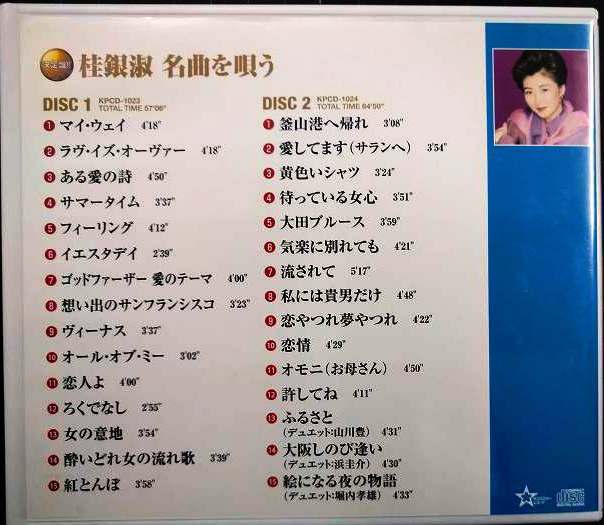 決定盤!! 桂銀淑 名曲を唄う
DISC 1 KPCD-1023 TOTAL TIME 57'06"
1 マイ・ウェイ 4'18"
2 ラヴ・イズ・オーヴァー 4'18"
3 ある愛の詩 4'50"
4 サマータイム 3'37"
5 フィーリング 4'12"
6 イエスタデイ 2'39"
7 ゴッドファーザー 愛のテーマ 4'00"
8 想い出のサンフランシスコ 3'23"
9 ヴィーナス 3'37"
10 オール・オブ・ミー 3'02"
11 恋人よ 4'00"
12 ろくでなし 2'55"
13 女の意地 3'54"
14 酔いどれ女の流れ歌 3'39"
15 紅とんぼ 3'58"
DISC 2 KPCD-1024 TOTAL TIME 64'50"
1 釜山港へ帰れ 3'08"
2 愛してます(サランヘ) 3'54"
3 黄色いシャツ 3'24"
4 待っている女心 3'51"
5 大田ブルース 3'59"
6 気楽に別れても 4'21"
7 流されて 5'17"
8 私には貴男だけ 4'48"
9 恋やつれ夢やつれ 4'22"
10 恋情 4'29"
11 オモニ(お母さん) 4'50"
12 許してね 4'11"
13 ふるさと
(デュエット:山川豊) 4'31"
14 大阪しのび逢い
(デュエット:浜圭介) 4'30"
15 絵になる夜の物語
(デュエット:堀内孝雄) 4'33"
COMPACT disc DIGITAL AUDIO